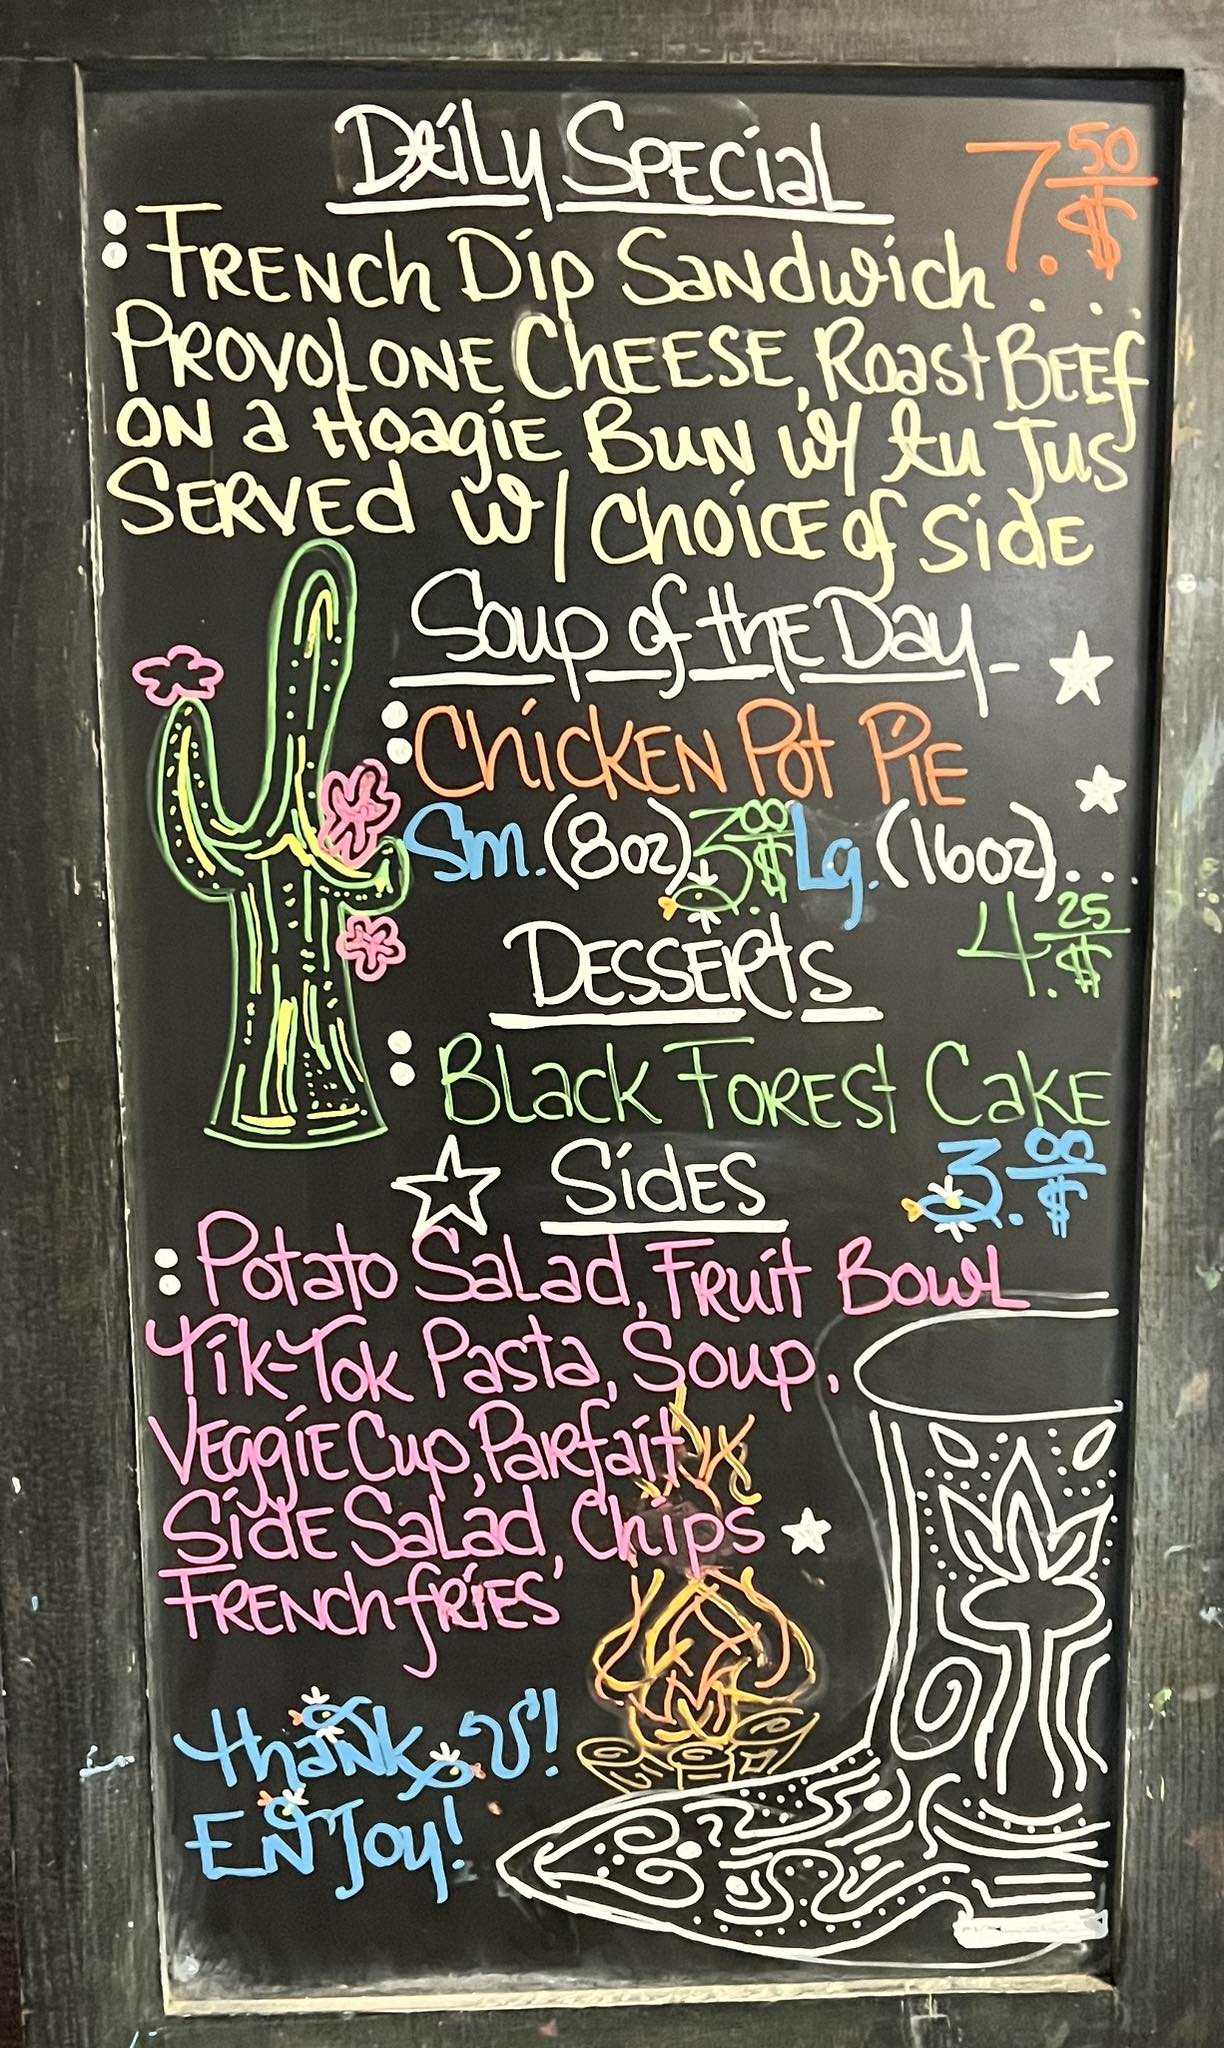 Daily Special
7.50
$
: French Dip Sandwich...
Provolone Cheese, Roast Beef
on a Hoagie Bun w/ Au Jus
Served w/ Choice of side
Soup of the Day
: Chicken Pot Pie
Sm. (8oz) 3.00 $ Lg. (16oz)...
4.25
$
Desserts
: Black Forest Cake
3.00
$
Sides
: Potato Salad, Fruit Bowl
Tik-Tok Pasta, Soup,
Veggie Cup, Parfait
Side Salad, Chips
French fries'
Thank U!
Enjoy!